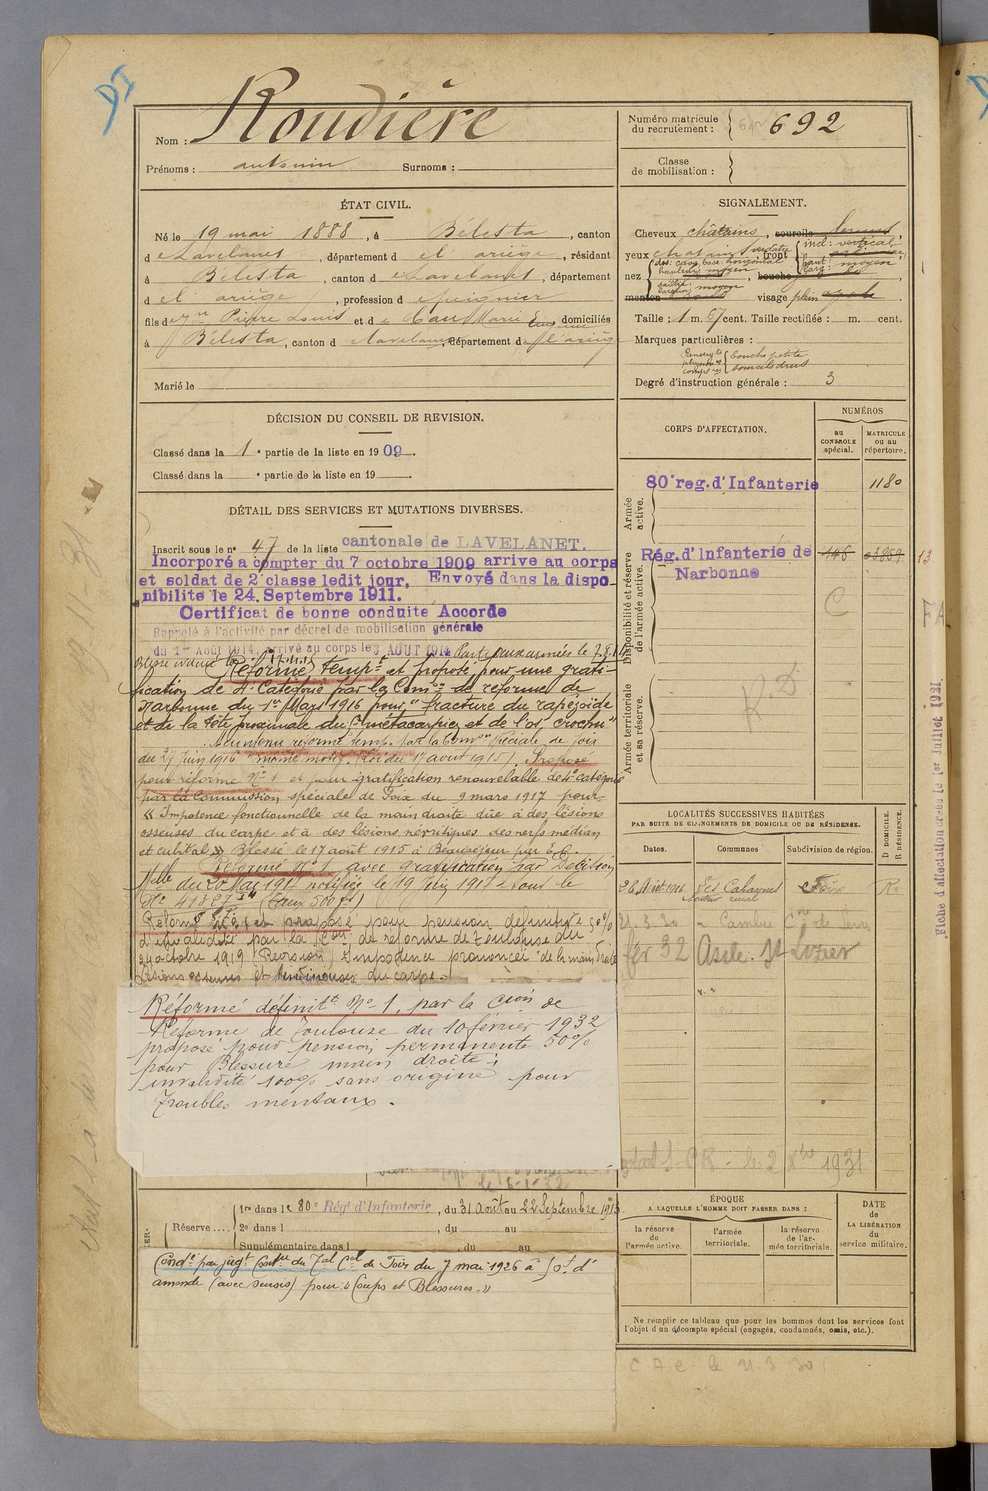 DI
Nom : Roudière
Prénoms : antonin Surnoms :
ÉTAT CIVIL.
Né le 19 mai 1888, à Bélesta, canton
d e Lavelanet, département d el ariège, résidant
à Bélesta, canton d e Lavelanet, département
d el ariège, profession d e peignier
fils de Pierre Louis et d e Marie domiciliés
à Bélesta, canton d e Lavelanet, département de l'ariège
Marié le
DÉCISION DU CONSEIL DE REVISION.
Classé dans la 1e partie de la liste en 1909.
Classé dans la e partie de la liste en 19 .
DÉTAIL DES SERVICES ET MUTATIONS DIVERSES.
Inscrit sous le n° 47 de la liste cantonale de LAVELANET.
Incorporé a compter du 7 octobre 1909 arrive au corps
et soldat de 2e classe ledit jour. Envoyé dans la dispo-
nibilite le 24 Septembre 1911.
Certificat de bonne conduite Accorde
Rappelé à l'activité par décret de mobilisation générale
du 1er Août 1914, arrivé au corps le 3 AOUT 1914 Parti aux armées le 7.8.14
Réformé tempre et proposé pour une grati-
fication de 4e Catégorie par la Comon de réforme de
Narbonne du 1er Mars 1916 pour "fracture du trapézoïde
et de la tête proximale du 2e métacarpien et de l'os crochu"
Maintenu réformé temp. par la Comon spéciale de Foix
du 27 juin 1916 "même motif" (Loi du 17 août 1915). Proposé
pour réforme N° 1 et pour gratification renouvelable de 4e catégorie
par la Commission spéciale de Foix du 9 mars 1917 pour
« Impotence fonctionnelle de la main droite dûe à des lésions
osseuses du carpe et à des lésions névritiques des nerfs médian
et cubital » Blessé le 17 août 1915 à Beauséjour par E.O.
Réformé N° 1 avec gratification par Décision
Mlle du 20 Mai 1917 notifiée le 19 juin 1917 sous le
N° 41887 (Taux 500 f)
Réformé et proposé pour pension définitive 50%
d'invalidité par la Con de réforme de Toulouse du
24 octobre 1919 (Revision) Impotence prononcée de la main droite
Lésions osseuses et tendineuses du carpe.
Réformé définitt N° 1, par la Cion de
Réforme de Toulouse du 10 février 1932
proposé pour pension permanente 50%
pour Blessure main droite ;
invalidité 100% sans origine pour
Troubles mentaux.
Réserve .... 1re dans le 80e Régt d'Infanterie, du 31 Août au 22 Septembre 1913
2e dans l , du au
Supplémentaire dans l , du au
Condé par jugt Contre du Tal Cel de Foix du 7 mai 1926 à 50f d'
amende (avec sursis) pour « Coups et Blessures. »
Numéro matricule du recrutement : 692
Classe de mobilisation :
SIGNALEMENT.
Cheveux châtains, sourcils
yeux châtains verdâtre, front incl: vertical
haut: larg: moyen
nez dos: cave base: horizontal
hauteur: moyen
saillie: largeur: moyen
bouche
menton visage plein
Taille : 1 m. 67 cent. Taille rectifiée : m. cent.
Marques particulières :
bouche petite
sourcils drus
Degré d'instruction générale : 3
CORPS D'AFFECTATION.
NUMÉROS
au CONTROLE spécial.
MATRICULE ou au répertoire.
Armée active.
80e reg. d'Infanterie 1180
Disponibilité et réserve de l'armée active.
Rég. d'Infanterie de Narbonne
146
13
C
Armée territoriale et sa réserve.
R D
LOCALITÉS SUCCESSIVES HABITÉES
PAR SUITE DE CHANGEMENTS DE DOMICILE OU DE RÉSIDENCE.
Dates. Communes Subdivision de région. D DOMICILE. R RÉSIDENCE.
28 Août 1926 Les Cabannes Foix R.
21.3.30
fév 32 Asile St Lizier
le 2 Xbre 1931
ÉPOQUE
A LAQUELLE L'HOMME DOIT PASSER DANS :
la réserve de l'armée active.
l'armée territoriale.
la réserve de l'armée territoriale.
DATE de LA LIBÉRATION du service militaire.
Ne remplir ce tableau que pour les hommes dont les services font
l'objet d'un décompte spécial (engagés, condamnés, omis, etc.).
C A C le 21.3.30
"Fiche d'affectation créée le 1er Juillet 1931."
FA